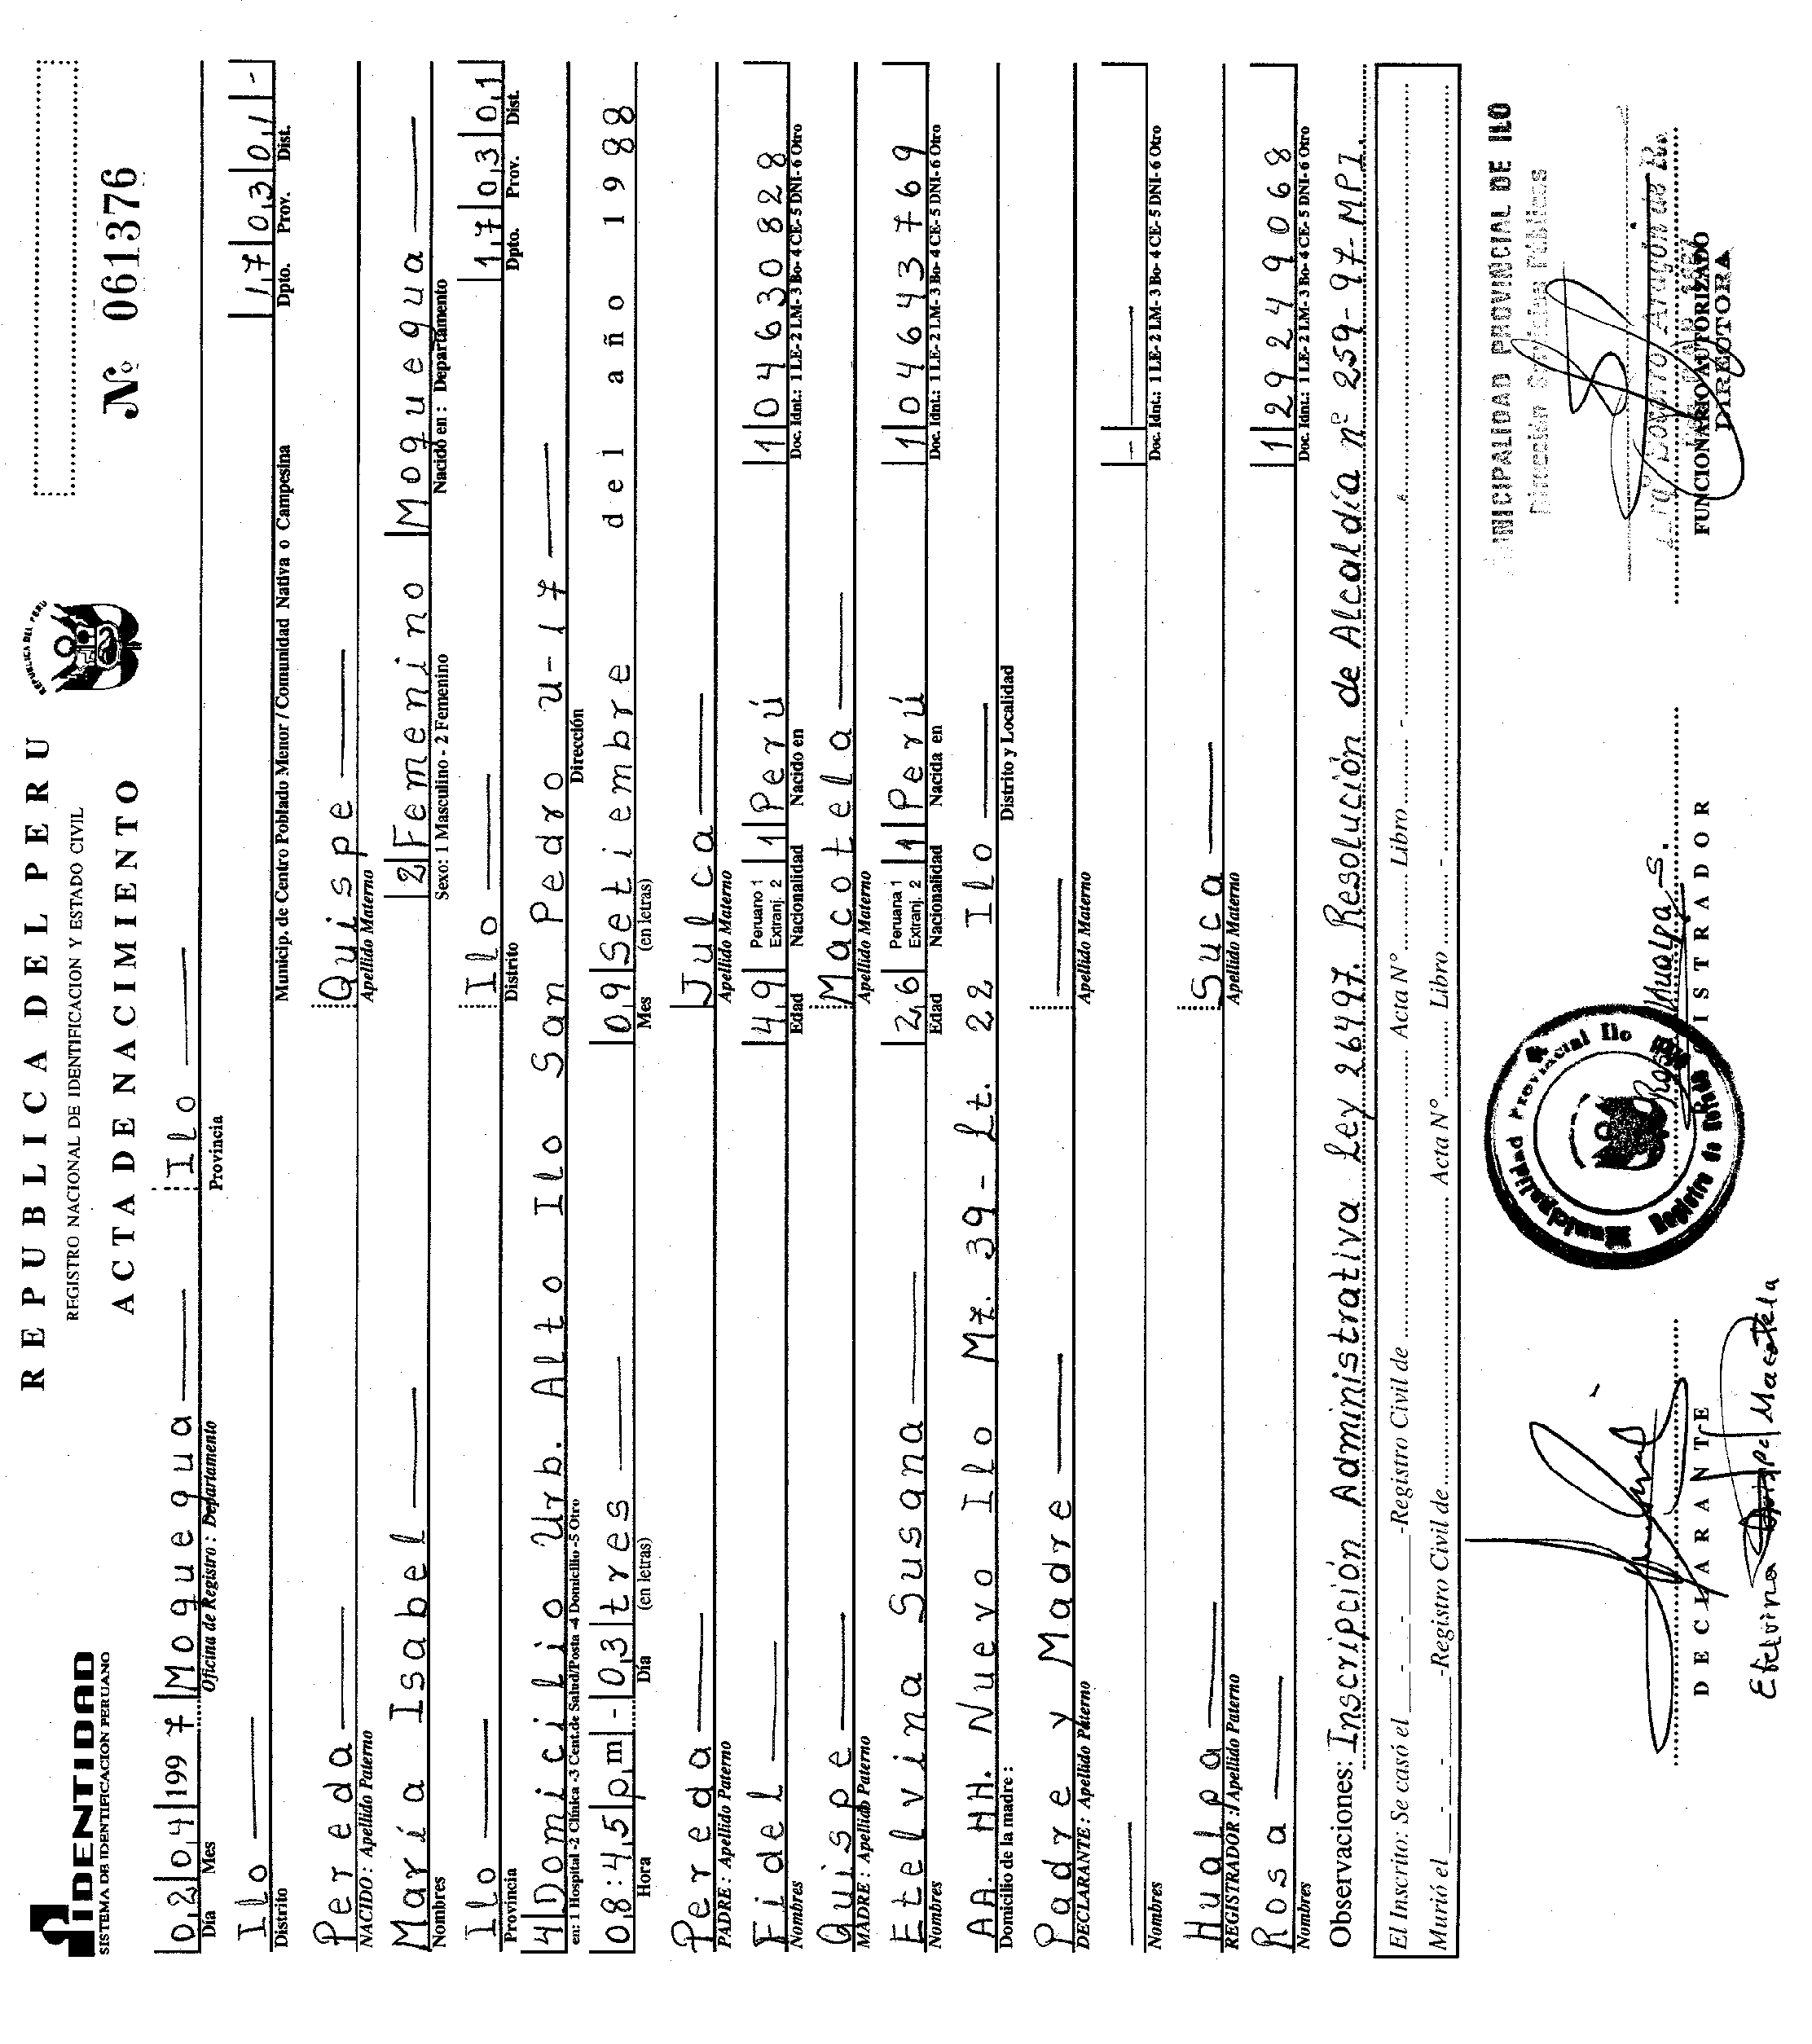 REPUBLICA DEL PERU
REPUBLICA DEL PERU
IDENTIDAD
SISTEMA DE IDENTIFICACION PERUANO
REGISTRO NACIONAL DE IDENTIFICACION Y ESTADO CIVIL
ACTA DE NACIMIENTO
Nº 061376
02 04 1997 Moquegua Ilo
Día Mes Oficina de Registro : Departamento Provincia
Ilo 17 03 01 -
Distrito Municip. de Centro Poblado Menor / Comunidad Nativa o Campesina Dpto. Prov. Dist.
Pereda Quispe
NACIDO : Apellido Paterno Apellido Materno
María Isabel 2 Femenino Moquegua
Nombres Sexo: 1 Masculino - 2 Femenino Nacido en : Departamento
Ilo Ilo 17 03 01
Provincia Distrito Dpto. Prov. Dist.
4 Domicilio Urb. Alto Ilo San Pedro u-17
en: 1 Hospital -2 Clínica -3 Cent.de Salud/Posta -4 Domicilio -5 Otro Dirección
08:45 pm - 03 tres 09 Setiembre del año 1988
Hora Día (en letras) Mes (en letras)
Pereda Julca
PADRE : Apellido Paterno Apellido Materno
Fidel 49 Peruano 1 Extranj. 2 1 Perú 1 04630828
Nombres Edad Nacionalidad Nacido en Doc. Idnt.: 1 LE- 2 LM- 3 Bo- 4 CE- 5 DNI- 6 Otro
Quispe Macotela
MADRE : Apellido Paterno Apellido Materno
Etelvina Susana 26 Peruana 1 Extranj. 2 1 Perú 1 04643769
Nombres Edad Nacionalidad Nacida en Doc. Idnt.: 1 LE- 2 LM- 3 Bo- 4 CE- 5 DNI- 6 Otro
AA. HH. Nuevo Ilo Mz. 39- Lt. 22 Ilo
Domicilio de la madre : Distrito y Localidad
Padre y Madre
DECLARANTE : Apellido Paterno Apellido Materno
Nombres Doc. Idnt.: 1 LE- 2 LM- 3 Bo- 4 CE- 5 DNI- 6 Otro
Hualpa Suca
REGISTRADOR : Apellido Paterno Apellido Materno
Rosa 1 29249068
Nombres Doc. Idnt.: 1 LE- 2 LM- 3 Bo- 4 CE- 5 DNI- 6 Otro
Observaciones: Inscripción Administrativa Ley 26497. Resolución de Alcaldía nº 259-97-MPI.
El Inscrito: Se casó el - - -Registro Civil de Acta N° Libro -
Murió el - - -Registro Civil de Acta N° Libro -
NICIPALIDAD PROVINCIAL DE ILO
Dirección Servicios Públicos
Municipalidad Provincial Ilo
Registro de Estado
Rosa Hualpa S.
DECLARANTE
REGISTRADOR
FUNCIONARIO AUTORIZADO
DIRECTORA
Etelvina Quispe Macotela